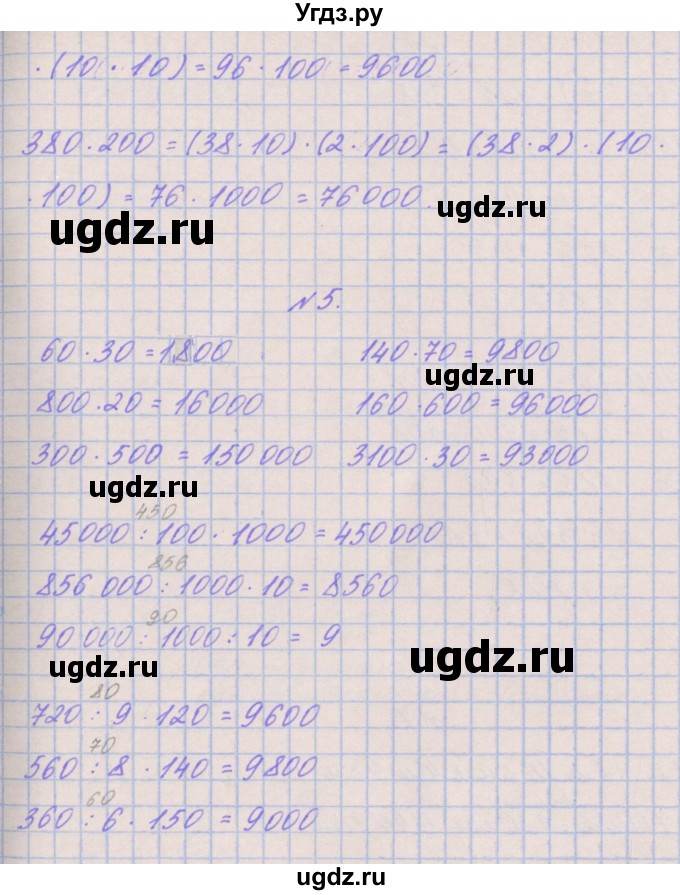 Угдз.ру
· (10 · 10) = 96 · 100 = 9600
380 · 200 = (38 · 10) · (2 · 100) = (38 · 2) · (10 ·
· 100) = 76 · 1000 = 76000.
ugdz.ru
ugdz.ru
№ 5.
60 · 30 = 1800 140 · 70 = 9800
ugdz.ru
800 · 20 = 16000 160 · 600 = 96000
300 · 500 = 150 000 3100 · 30 = 93000
ugdz.ru
450
45000 : 100 · 1000 = 450 000
856
856 000 : 1000 · 10 = 8560
90
90 000 : 1000 : 10 = 9
ugdz.ru
ugdz.ru
80
720 : 9 · 120 = 9600
70
560 : 8 · 140 = 9800
60
360 : 6 · 150 = 9000
ugdz.ru